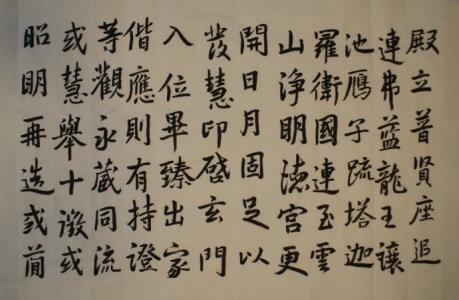 殿立普賢座追
連弗藍龍王讓
池鴈子疏塔迦
羅衛國連玉雲
山淨明德宮更
開日月固足以
發慧印啓玄門
入位畢臻出家
偕應則有持證
等觀永藏同流
或慧舉十徵或
昭明再造或簡